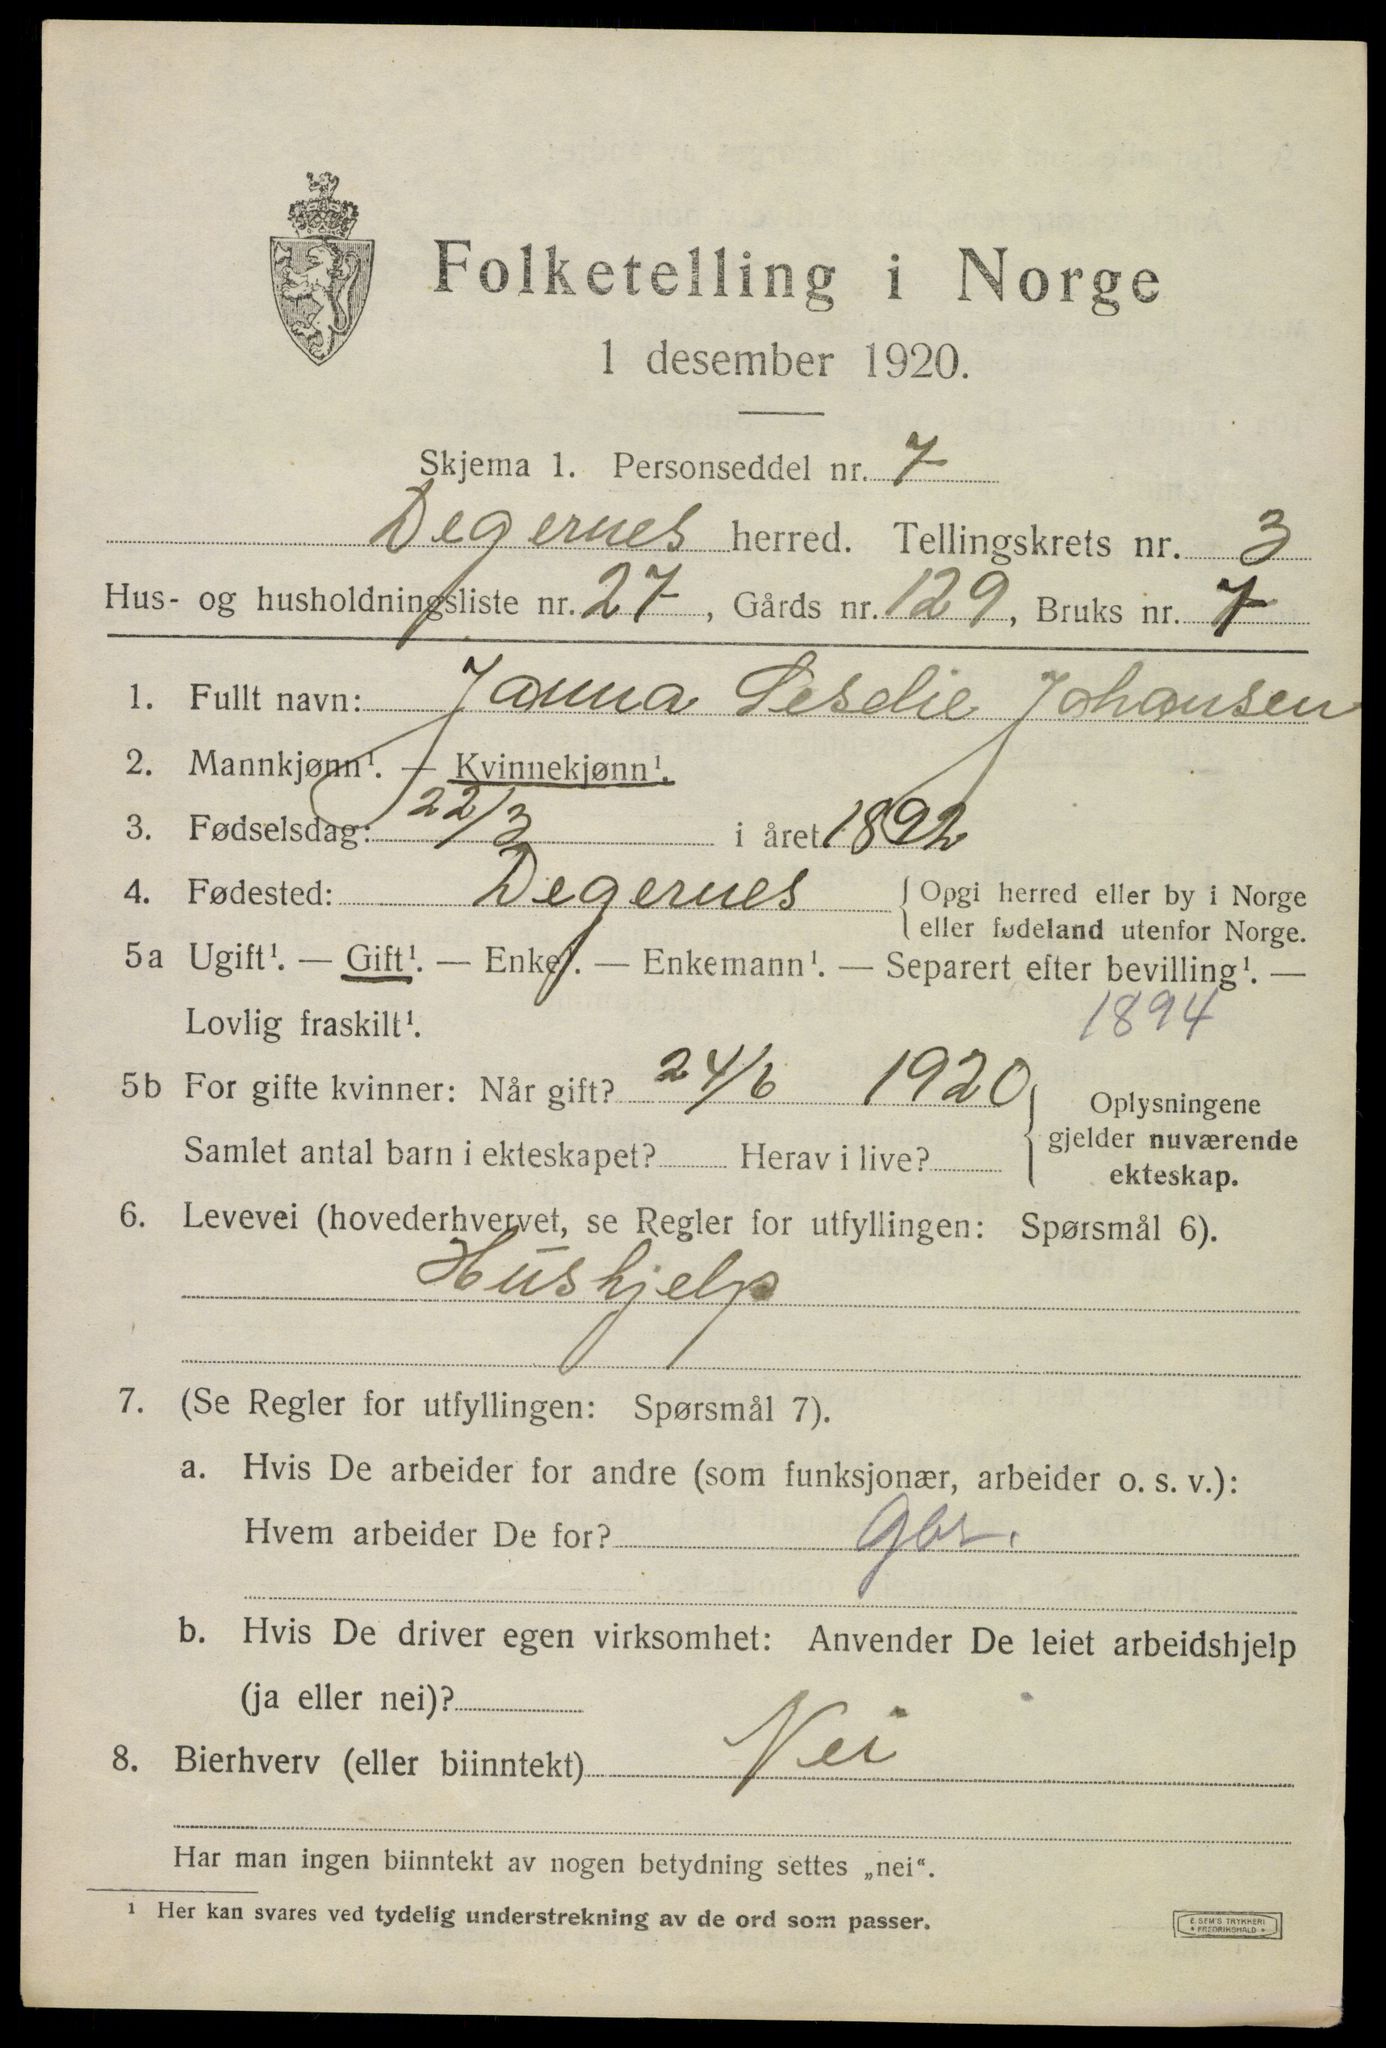 Folketelling i Norge
1 desember 1920.
Skjema 1. Personseddel nr. 7
Degernes herred. Tellingskrets nr. 3
Hus- og husholdningsliste nr. 27, Gårds nr. 129, Bruks nr. 7
1. Fullt navn: Janna Johansen
2. Mannkjønn¹. — Kvinnekjønn¹.
3. Fødselsdag: 22/3 i året 1892
4. Fødested: Degernes { Opgi herred eller by i Norge
eller fødeland utenfor Norge.
5a Ugift¹. — Gift¹. — Enke¹. — Enkemann¹. — Separert efter bevilling¹. —
Lovlig fraskilt¹. 1894
5b For gifte kvinner: Når gift? 24/6 1920
Samlet antal barn i ekteskapet? Herav i live?
Oplysningene
gjelder nuværende
ekteskap.
6. Levevei (hovederhvervet, se Regler for utfyllingen: Spørsmål 6).
Hushjelp
7. (Se Regler for utfyllingen: Spørsmål 7).
a. Hvis De arbeider for andre (som funksjonær, arbeider o. s. v.):
Hvem arbeider De for? gbr.
b. Hvis De driver egen virksomhet: Anvender De leiet arbeidshjelp
(ja eller nei)?
8. Bierhverv (eller biinntekt) Nei
Har man ingen biinntekt av nogen betydning settes „nei“.
¹ Her kan svares ved tydelig understrekning av de ord som passer.
E. SEM'S TRYKKERI
• FREDRIKSHALD •